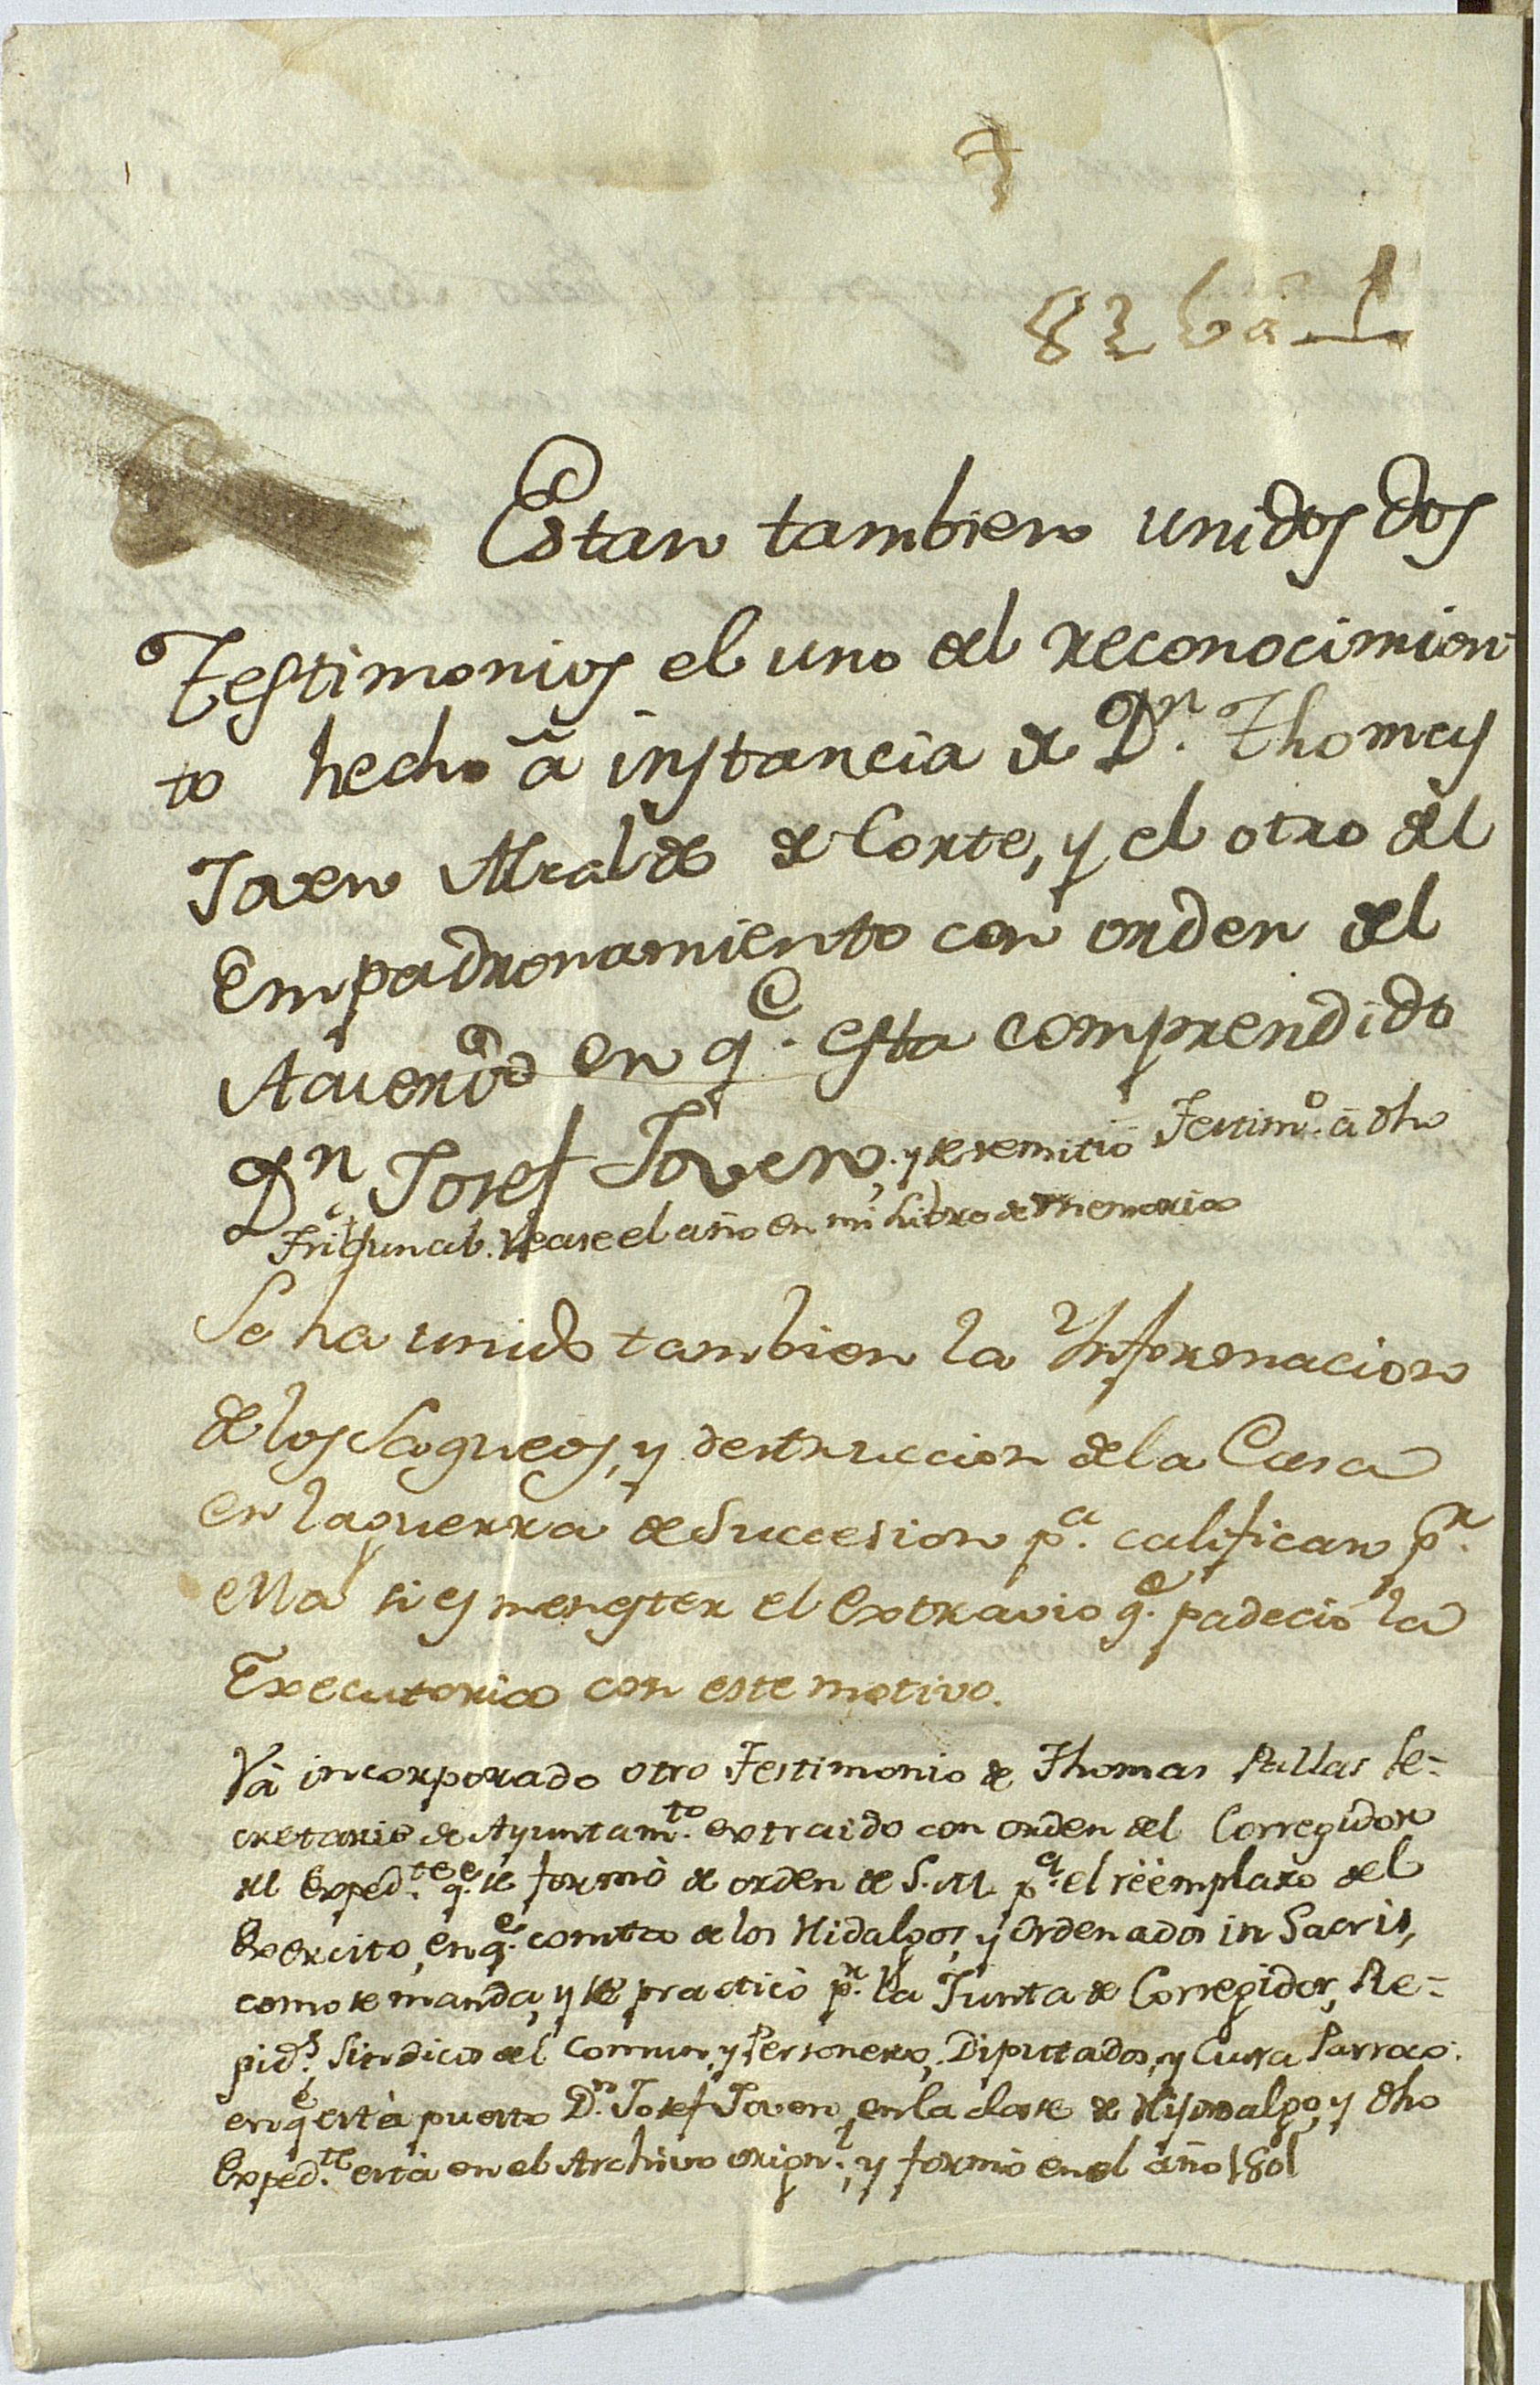 Estan tambien unidos dos
Testimonios el uno del reconocimien-
to hecho â instancia de Dn. Thomas
Joven Alcalde de Corte, y el otro del
Empadronamiento con orden del
Acuerdo en qe. esta comprendido
Dn. Josef Joven, y se remitiò Testimo. â dho
Tribunal. Vease el año en mi Libro de Memoria
Se ha unido tambien la Informacion
de los Saqueos, y destruccion de la Casa
en la guerra de Succesion pa. calificar pr.
ella si es menester el extravio qe. padeciò la
Executoria con este motivo.
Và incorporado otro Testimonio de Thomas Pallas Se-
cretario de Ayuntamto. extraido con orden del Corregidor
del Expedte. qe. se formò de orden de S. M. pa. el rëemplazo del
Exercito, en qe. consta de los Hidalgos, y Ordenados in Sacris,
como se manda, y se practicò pr. la Junta de Corregidor, Re-
gids. Sindico del Comun, y Personero, Diputados, y Cura Parroco.
en qe està puesto Dn. Josef Joven en la clase de Hijodalgo, y dho
Expedte. està en el Archivo orignl. y formò en el año 1801